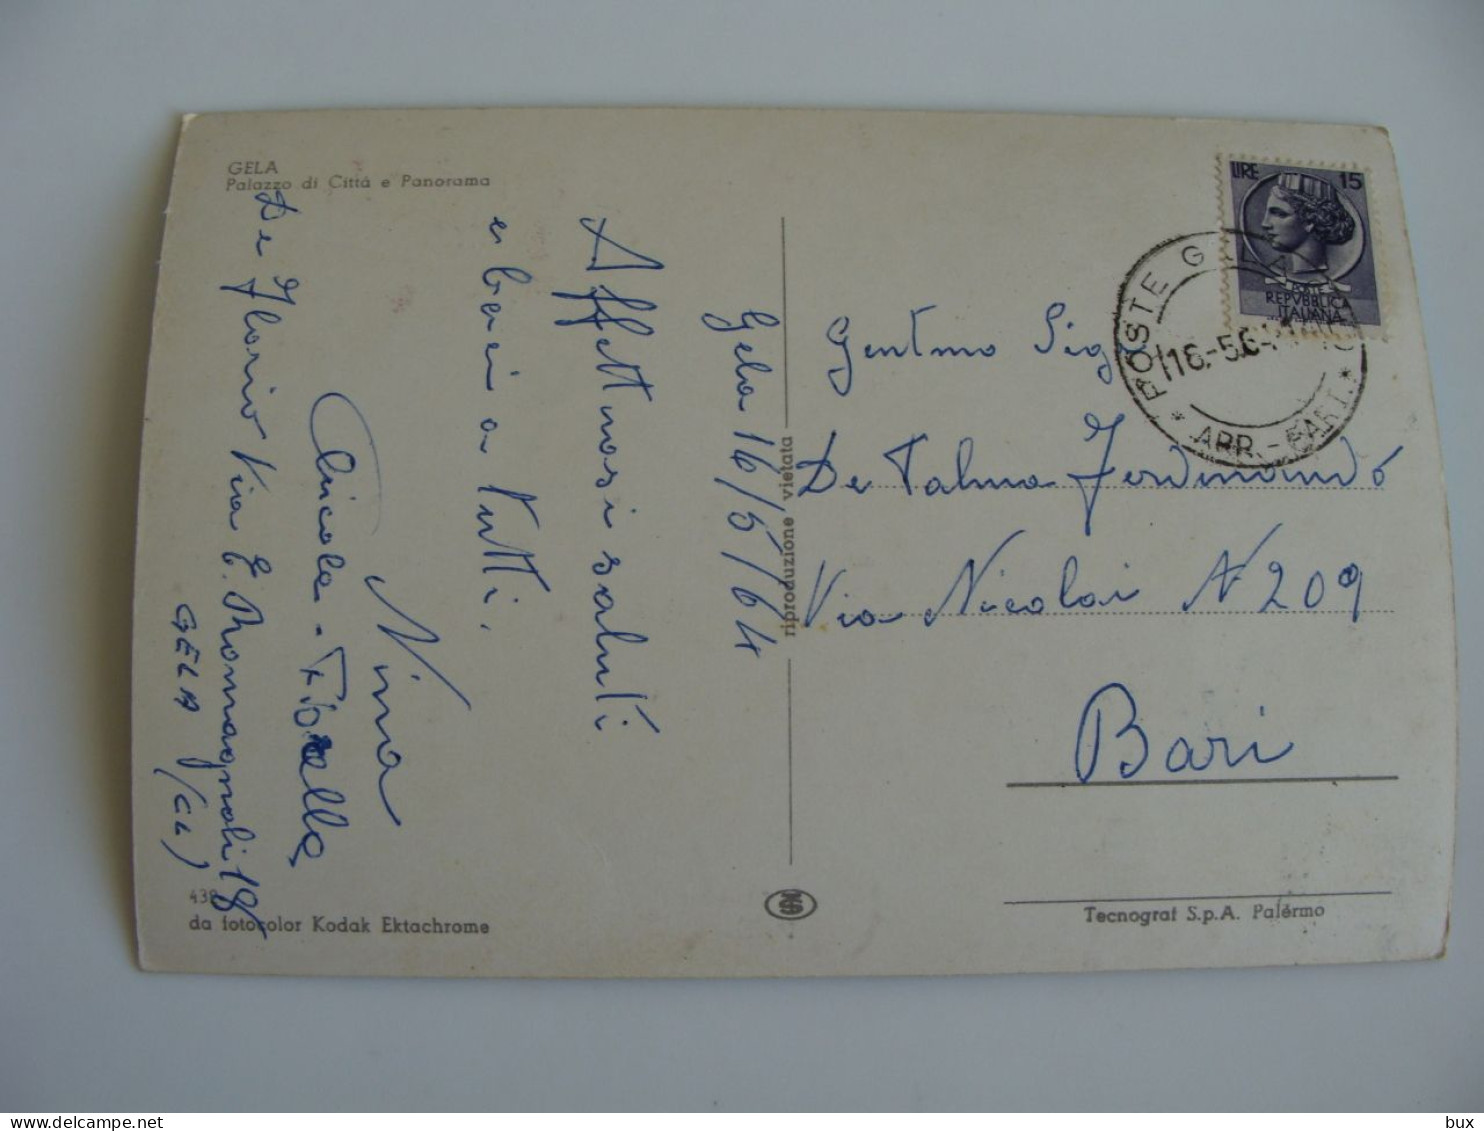 GELA
Palazzo di Città e Panorama
Gela 16/5/64
Affettuosi saluti
e baci a tutti.
Nina
Fiorella
De Florio Via E. Romagnoli 18
GELA (CL)
438
da fotocolor Kodak Ektachrome
riproduzione vietata
LIRE 15
POSTE
REPVBBLICA
ITALIANA
POSTE GELA
16.-5.64
ARR.-PART.
Gentmo Sig.
De Palma Ferdinando
Via Nicolai N 209
Bari
Tecnograf S.p.A. Palermo
bux